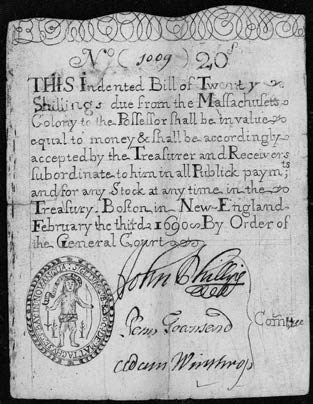 No (1009) 20s
THIS Indented Bill of Twenty
Shillings due from the Massachusets
Colony to the Possessor shall be in value
equal to money & shall be accordingly
accepted by the Treasurer and Receivers
subordinate to him in all Publick paymts
and for any Stock at any time in the
Treasury. Boston in New-England
February the third 1690. By Order of
the General Court
John Phillips
Penn Townsend
Adam Winthrop
Comttee